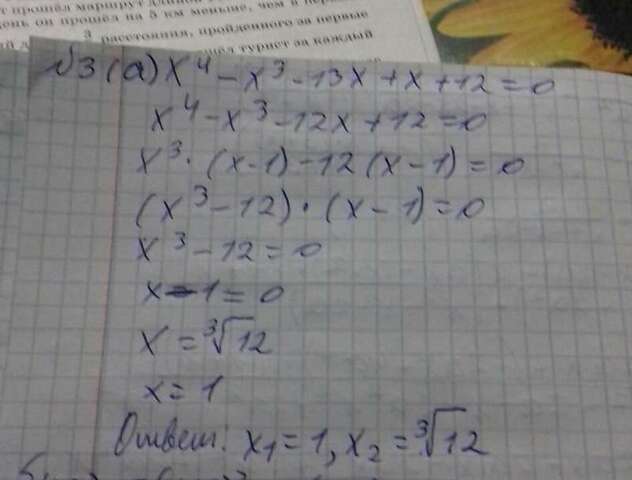 т прошёл маршрут длиной
день он прошёл на 5 км меньше, чем в перв
3 расстояния, пройденного за первые
турист за каждый
№3 (а) x⁴ - x³ - 13x + x + 12 = 0
x⁴ - x³ - 12x + 12 = 0
x³ · (x - 1) - 12 (x - 1) = 0
(x³ - 12) · (x - 1) = 0
x³ - 12 = 0
x - 1 = 0
x = ³√12
x = 1
Ответ: x₁ = 1, x₂ = ³√12